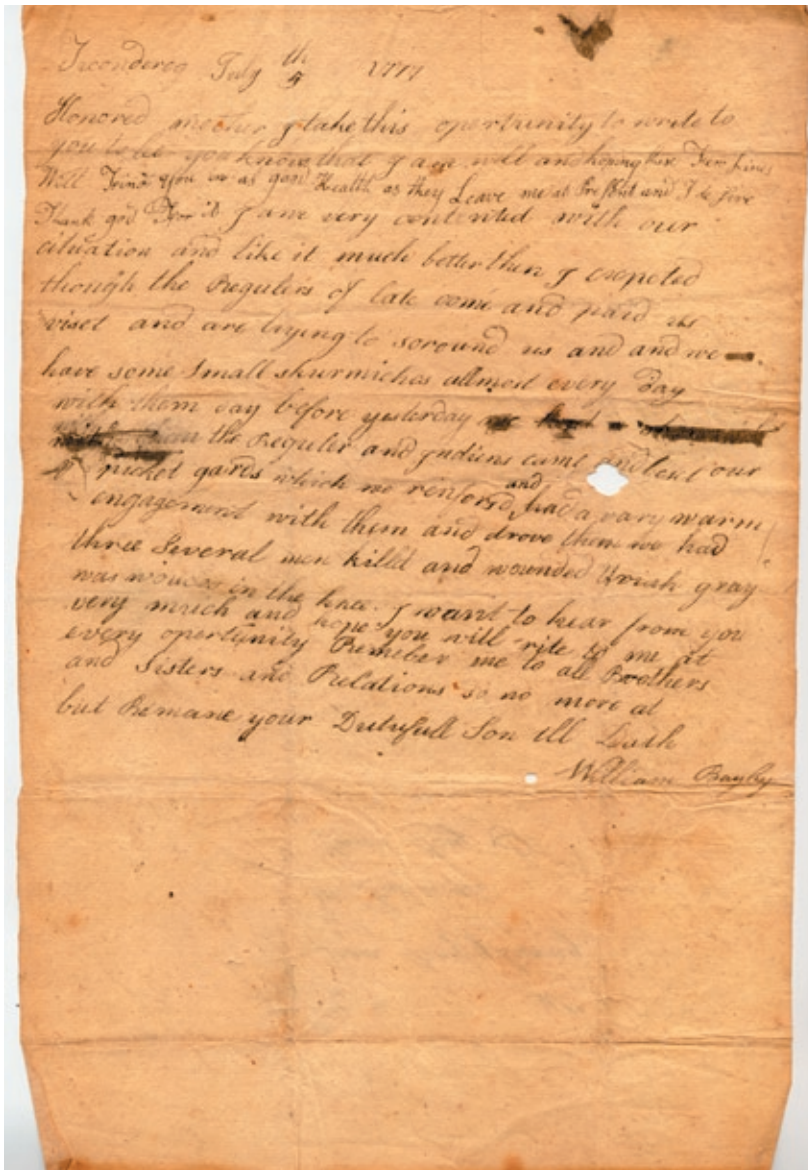 Ticonderog July 5th 1777
Honored mother I take this opertunity to write to
you to let you know that I am well and hoping these Few Lines
Will Find you in as good Health as they Leave me at and I
Thank god For it I am very contented with our
cituation and like it much better then I expected
though the Regulers of late come and paid us
viset and are trying to soround us and and we
have some Small skurmiches allmost every Day
with them day before yesterday
the Reguler and Indiens came and our
picket gards which we renforsd and had a vary warm
engagement with them and drove them we had
three Several men killd and wounded Uriah gray
was in the knee I want to hear from you
very much and hope you will rite to me at
every opertunity Remeber me to all Brothers
and Sisters and Relations so no more at
but Remane your Dutyfull Son till Death
William Bayley